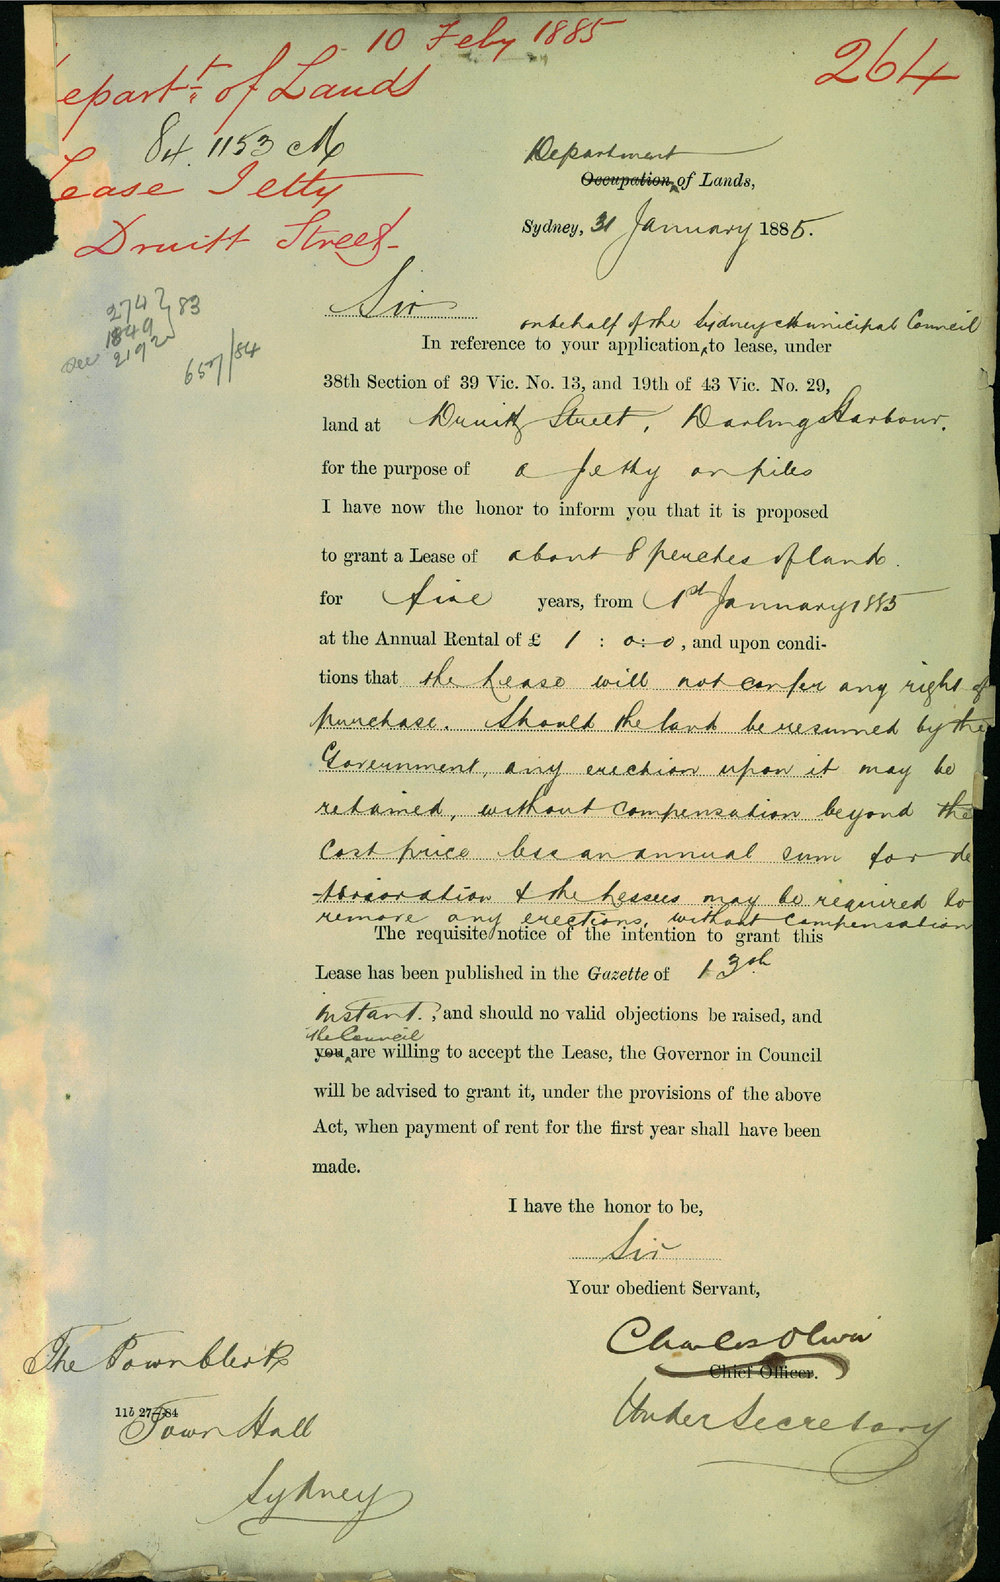 10 Feby 1885
264
epartt of Lands
84. 1153 M
ease Jetty
Druitt Street
2747
1849 } 83
see 2192
657/84
Department
Occupation of Lands,
Sydney, 31 January 1885.
Sir
on behalf of the Sydney Municipal Council
In reference to your application, to lease, under
38th Section of 39 Vic. No. 13, and 19th of 43 Vic. No. 29,
land at Druitt Street, Darling Harbour.
for the purpose of a Jetty on piles
I have now the honor to inform you that it is proposed
to grant a Lease of about 8 perches of land.
for five years, from 1st January 1885
at the Annual Rental of £ 1 : 0 : 0, and upon condi-
tions that the Lease will not confer any right of
purchase. Should the land be resumed by the
Government, any erection upon it may be
retained, without compensation beyond the
cost price less an annual sum for de
-terioration & the Lessees may be required to
remove any erections, without compensation
The requisite notice of the intention to grant this
Lease has been published in the Gazette of 13th
instant., and should no valid objections be raised, and
the Council
you are willing to accept the Lease, the Governor in Council
will be advised to grant it, under the provisions of the above
Act, when payment of rent for the first year shall have been
made.
I have the honor to be,
Sir
Your obedient Servant,
Charles Oliver
Chief Officer.
Under Secretary
The Town Clerk
11b 27-84
Town Hall
Sydney